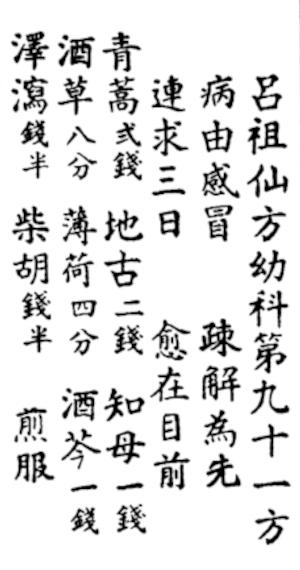 呂祖仙方幼科第九十一方
病由感冒 疎解為先
連求三日 愈在目前
青蒿弍錢 地古二錢 知母一錢
酒草八分 薄荷四分 酒芩一錢
澤瀉錢半 柴胡錢半 煎服